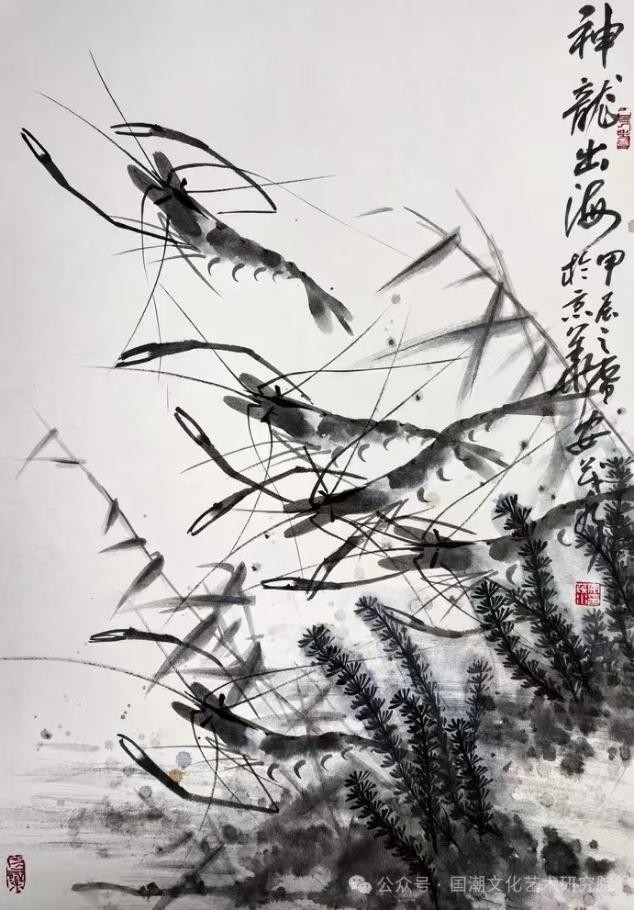 神龍出海
甲辰之春
於京華
安
公众号·国潮文化艺术研究院